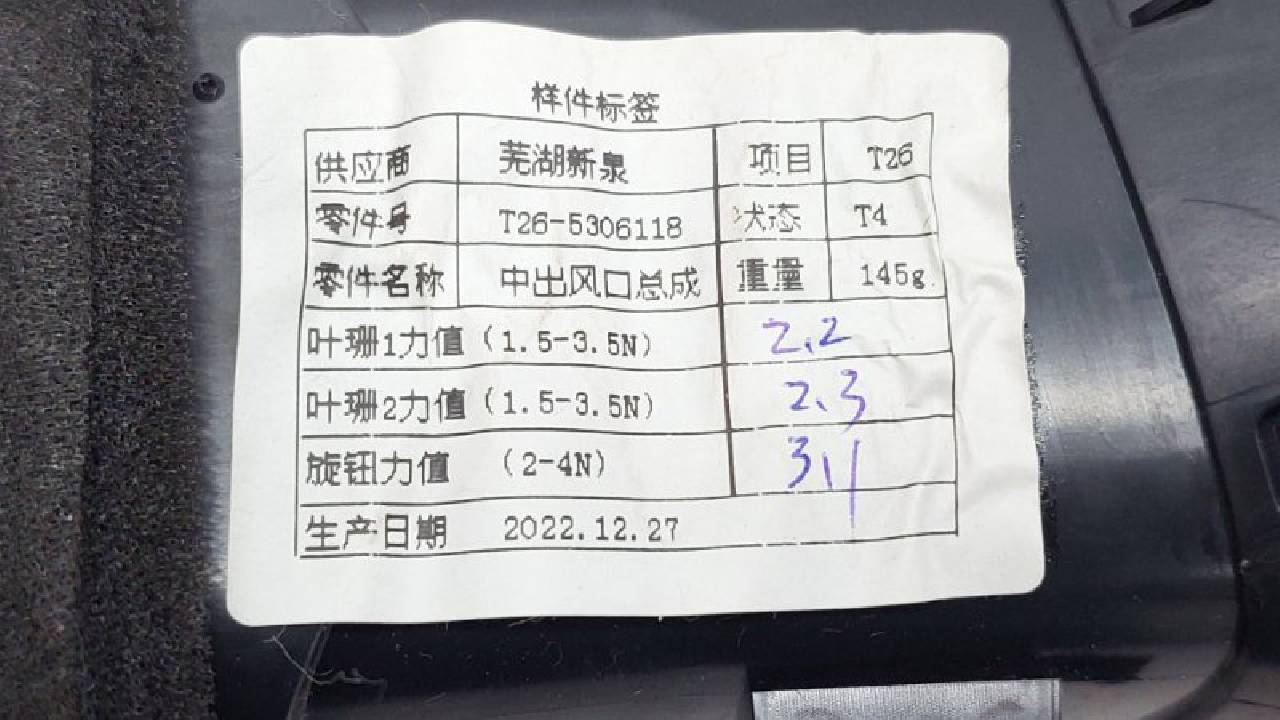 样件标签
供应商 芜湖新泉 项目 T26
零件号 T26-5306118 状态 T4
零件名称 中出风口总成 重量 145g
叶珊1力值(1.5-3.5N) 2.2
叶珊2力值(1.5-3.5N) 2.3
旋钮力值 (2-4N) 3.1
生产日期 2022.12.27